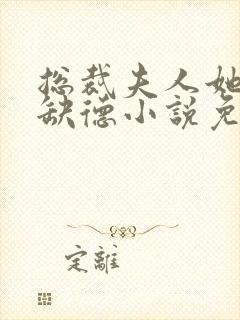 总裁夫人她
缺德小説免
定離